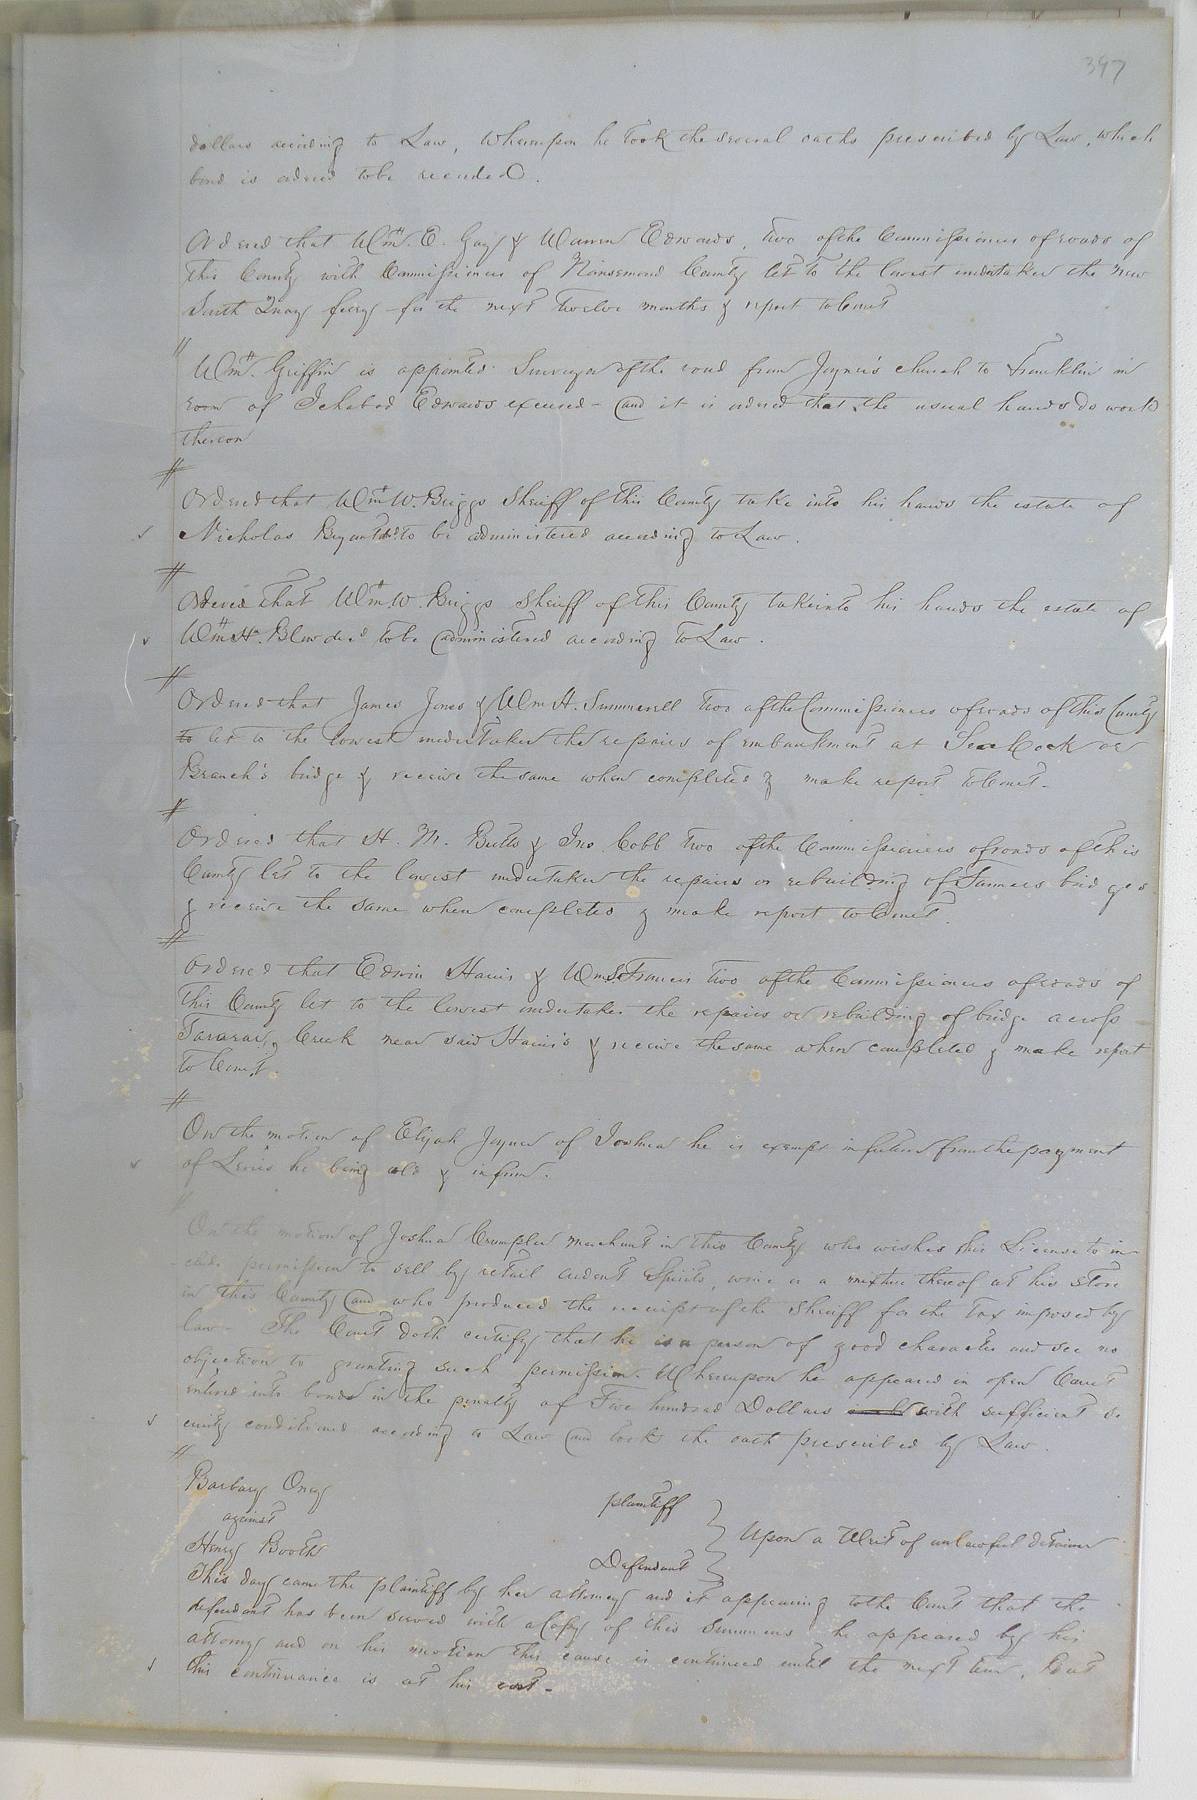 397
dollars according to Law, Whereupon he took the several oaths prescribed by Law, which
bond is ordered to be recorded.
Ordered that Wm. E. Gay & Warren Edwards, two of the Commissioners of roads of
this County with Commissioners of Nansemond County let to the lowest undertaker the new
South Quay ferry for the next Twelve months & report to Court
Wm. Griffin is appointed Surveyor of the road from Joyner's church to Franklin in
room of Ichabod Edwards excused - and it is ordered that the usual hands do work
thereon
Ordered that Wm W. Briggs Sheriff of this County take into his hands the estate of
Nicholas Bryant decd. to be administered according to Law.
Ordered That Wm. W. Briggs Sheriff of this County take into his hands the estate of
Wm H. Blow decd to be administered according to Law.
Ordered that James Jones & Wm H. Summerell two of the Commissioners of roads of this County
to let to the lowest undertaker the repairs of embankment at Seacock or
Branch's bridge & receive the same when completed & make report to Court.
Ordered that H. M. Butts & Jno Cobb two of the Commissioners of roads of this
County let to the lowest undertaker the repairs or rebuilding of bridges
& receive the same when completed & make report to Court.
Ordered that Edwin Harris & Wm S. Francis two of the Commissioners of roads of
this County let to the lowest undertaker the repairs or rebuilding of bridge across
Tararara Creek near said Harris's & receive the same when completed & make report
to Court.
On the motion of Elijah Joyner of Joshua he is exempt in future from the payment
of Levies he being old & infirm.
On the motion of Joshua Crumpler merchant in this County who wishes his License to in-
clude permission to sell by retail ardent Spirits, wine or a mixture thereof at his store
in this County and who produced the receipt of the Sheriff for the tax imposed by
law - The Court doth certify that he is a person of good character and see no
objection to granting such permission. Whereupon he appeared in open Court
entered into bond in the penalty of Five hundred Dollars with sufficient se
curity conditioned according to Law and took the oath prescribed by Law.
Barbary Oney plaintiff
against
Henry Booth Defendant
Upon a Writ of unlawful detainer
This day came the plaintiff by her attorney and it appearing to the Court that the
defendant has been served with a Copy of this Summons he appeared by his
attorney and on his motion this cause is continued until the next term, But
this continuance is at his cost.